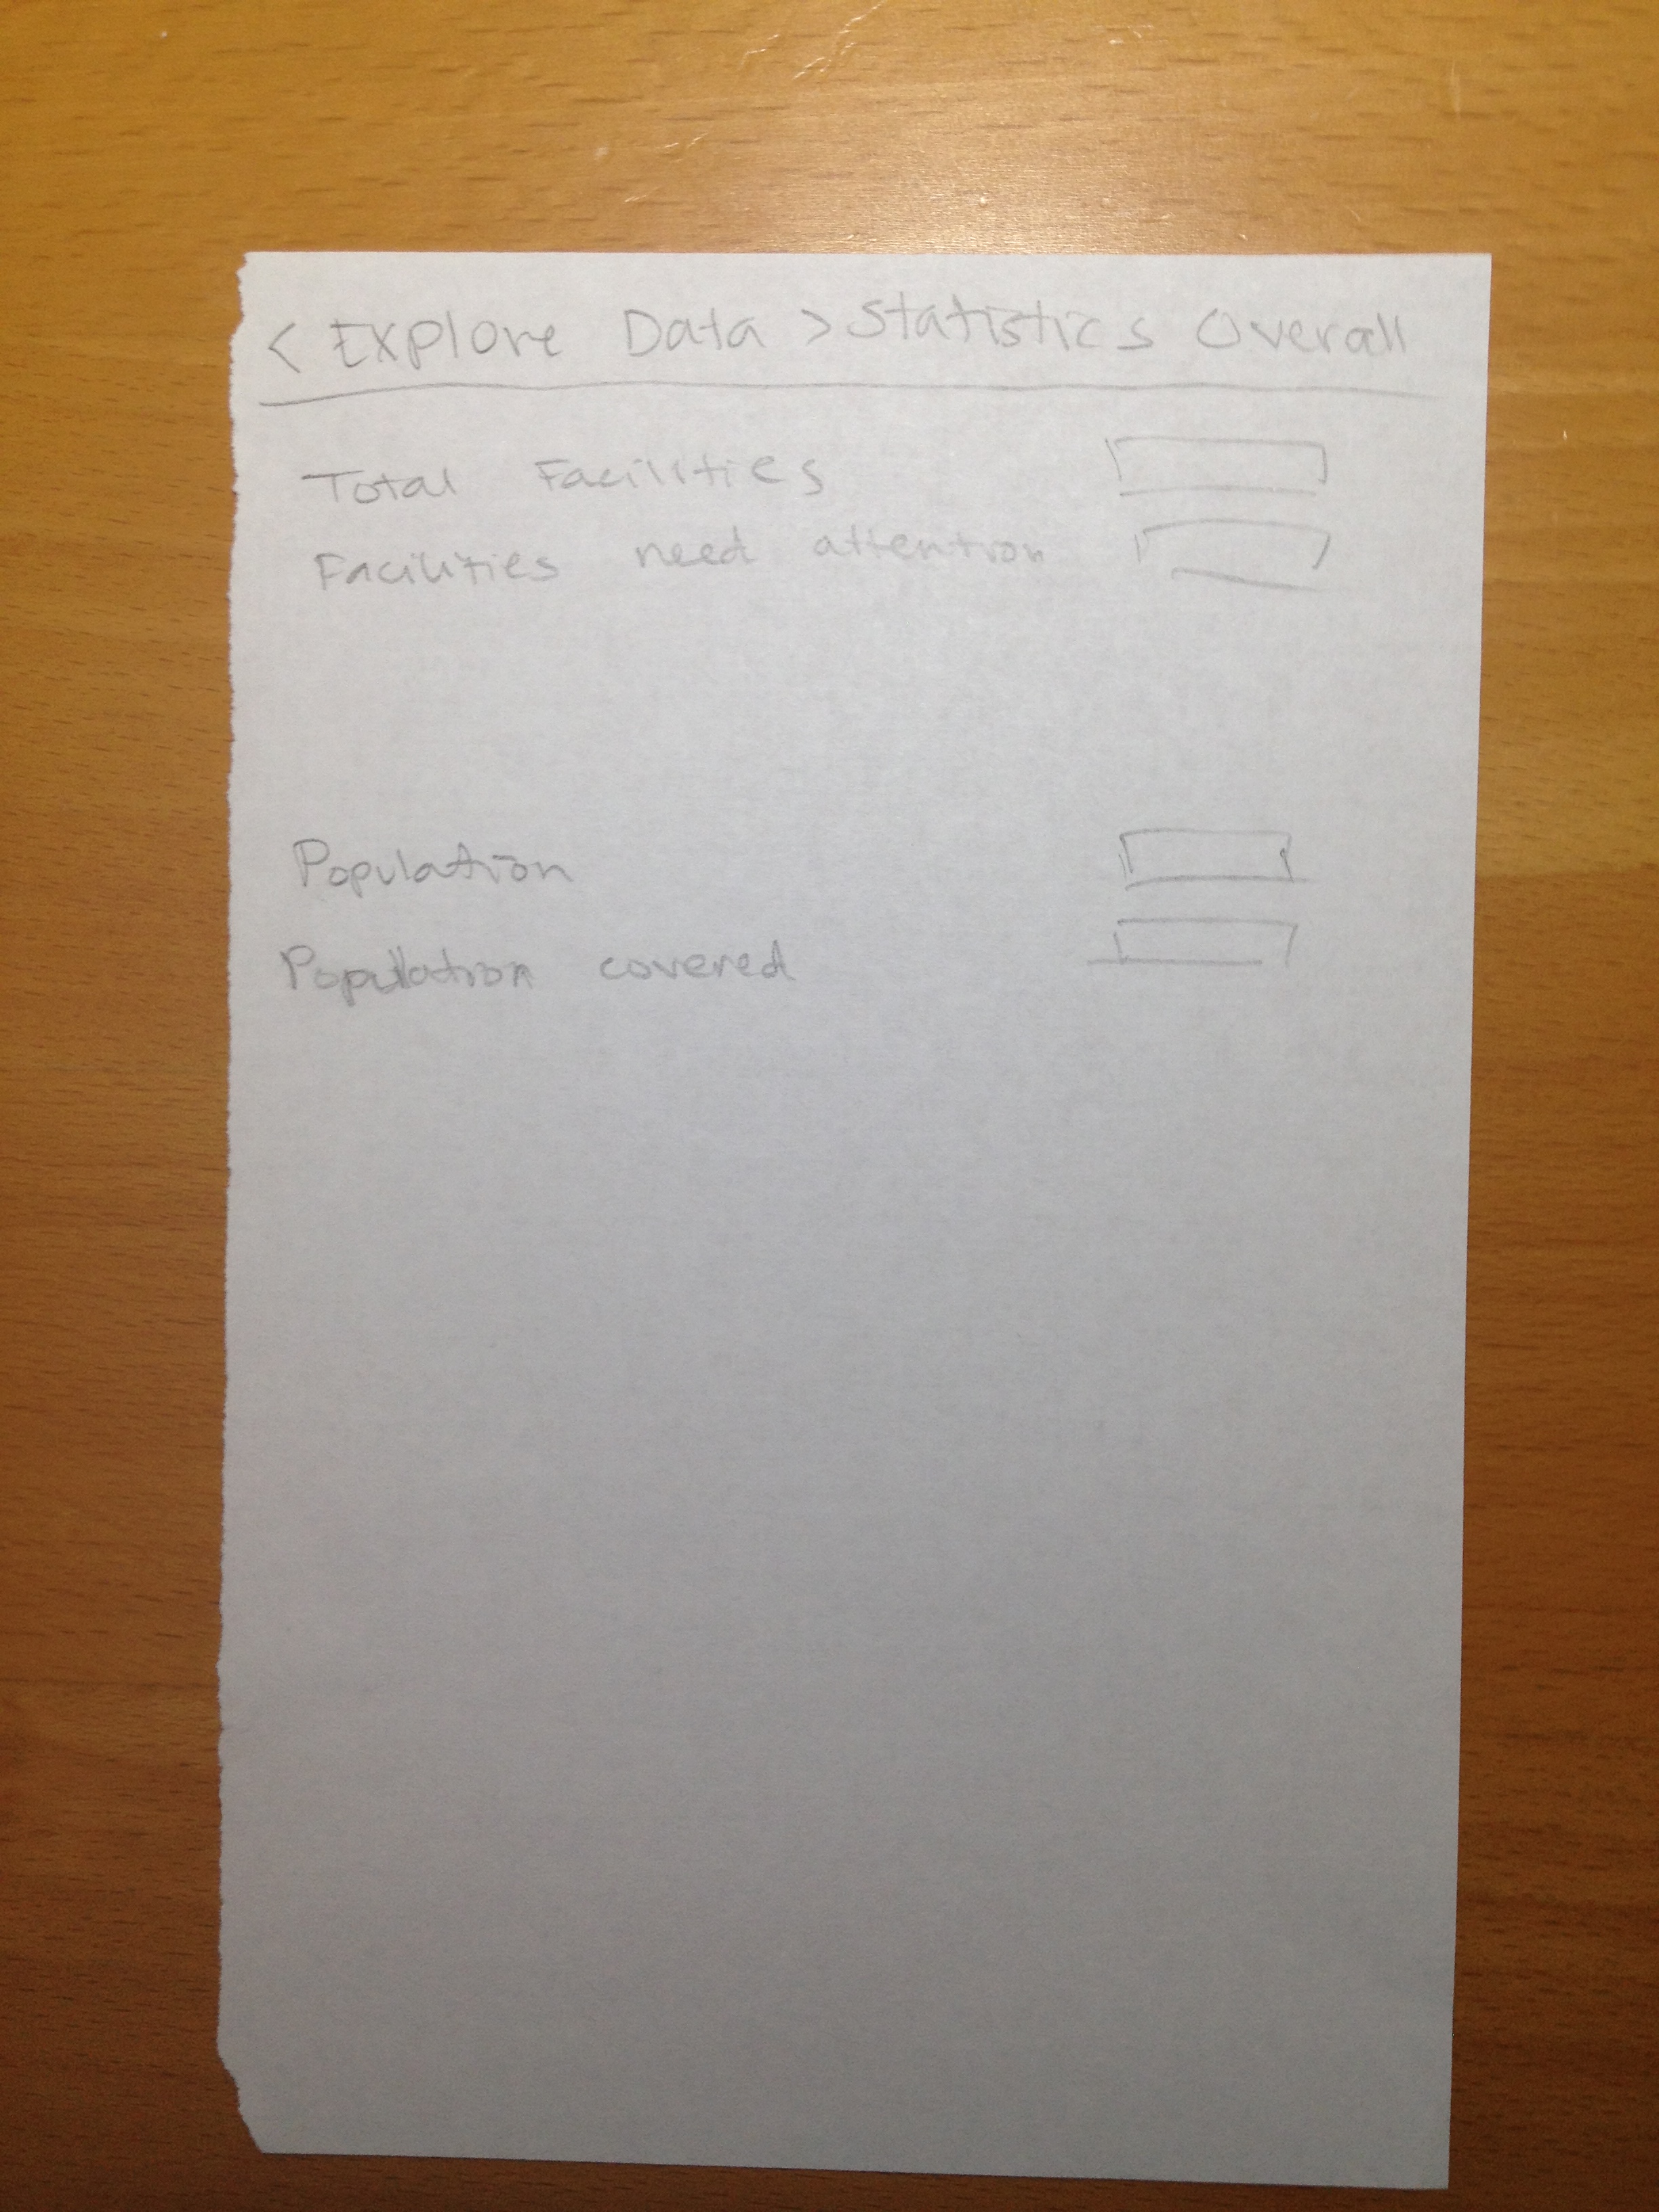 < Explore Data > Statistics Overall
Total Facilities
Facilities need attention
Population
Population covered